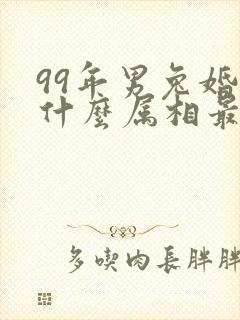 99年男兔婚
什麼属相最
多喫肉長胖胖